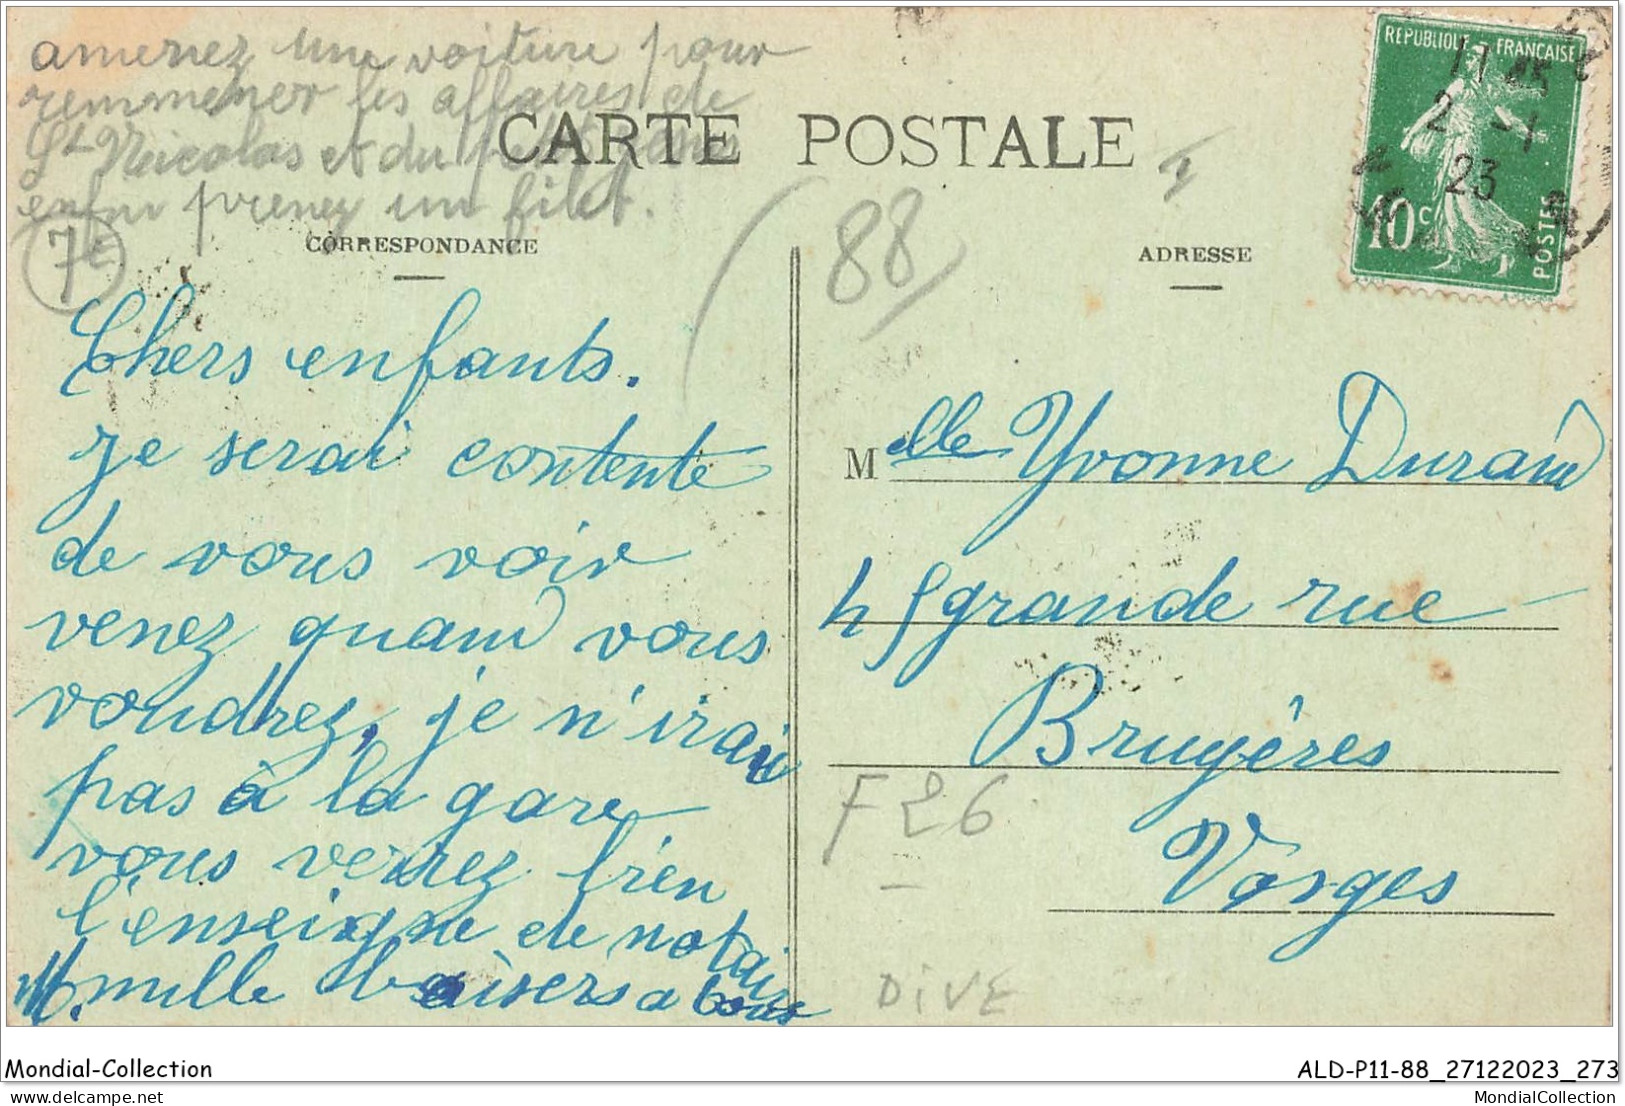 amenez une voiture pour
remmener les affaires de
St Nicolas et du
enfin prenez un filet.
CARTE POSTALE
REPUBLIQUE FRANCAISE
11 45
2 -1
23
10c
POSTES
7€
CORRESPONDANCE
88
ADRESSE
Chers enfants.
Je serai contente
de vous voir
venez quand vous
voudrez, je n'irai
pas à la gare,
vous verrez bien
l'enseigne de notaire
M. mille baisers a tous
Melle Yvonne Durand
45 grande rue
Bruyères
Vosges
F 26
DIVE
Mondial-Collection
ALD-P11-88_27122023_273
MondialCollection